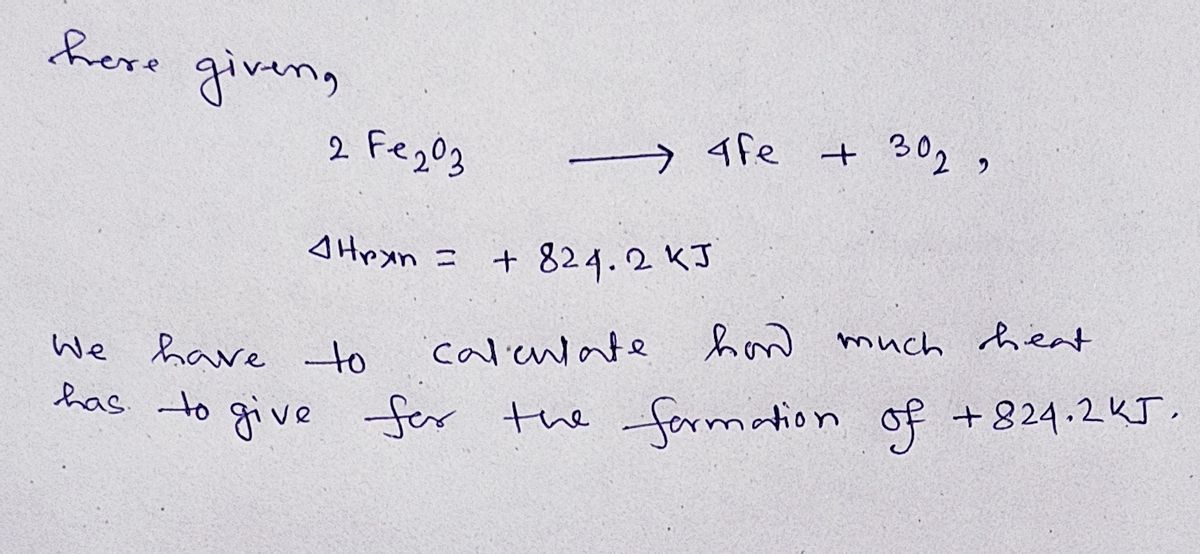 here given,
2 Fe₂O₃ ⟶ 4Fe + 3O₂,
ΔHrxn = + 824.2 KJ
We have to calculate how much heat
has to give for the formation of +824.2KJ.